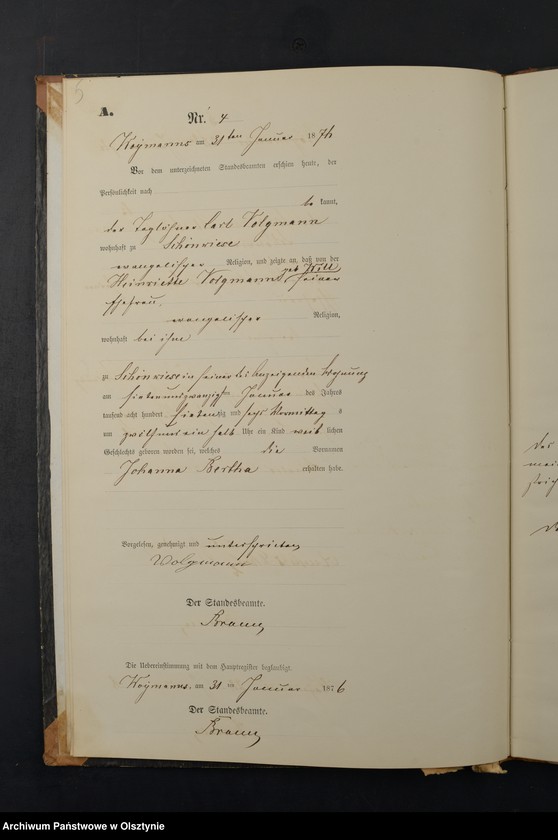 5
A.
Nr. 4
Woymanns am 31ten Januar 1876
Vor dem unterzeichneten Standesbeamten erschien heute, der
Persönlichkeit nach
be kannt,
der Taglöhner Carl Volgmann
wohnhaft zu Schönwiese
evangelischer Religion, und zeigte an, daß von der
Heinriette Volgmann geb Will seiner
Ehefrau,
evangelischer Religion,
wohnhaft bei ihm
zu Schönwiese in seiner des Anzeigenden Wohnung
am siebenundzwanzigsten Januar des Jahres
tausend acht hundert siebenzig und sechs Vormittag s
um ein halb Uhr ein Kind weib lichen
Geschlechts geboren worden sei, welches die Vornamen
Johanna Bertha erhalten habe.
Vorgelesen, genehmigt und unterschrieben
Wolgmann
Der Standesbeamte.
Die Uebereinstimmung mit dem Hauptregister beglaubigt.
Woymanns, am 31 ten Januar 1876
Der Standesbeamte.
Archiwum Państwowe w Olsztynie